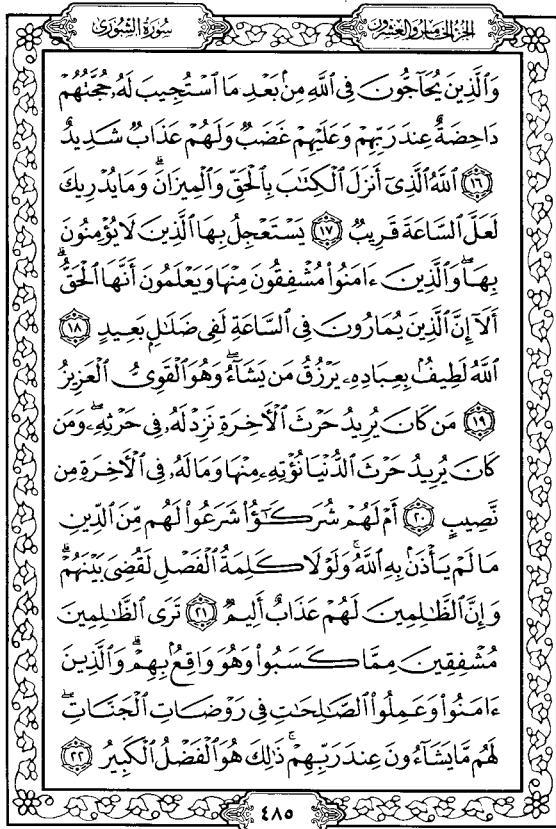 الجزء الخامس والعشرون
سورة الشورى
وَٱلَّذِينَ يُحَآجُّونَ فِى ٱللَّهِ مِنۢ بَعْدِ مَا ٱسْتُجِيبَ لَهُۥ حُجَّتُهُمْ
دَاحِضَةٌ عِندَ رَبِّهِمْ وَعَلَيْهِمْ غَضَبٌ وَلَهُمْ عَذَابٌ شَدِيدٌ
۝١٦ ٱللَّهُ ٱلَّذِىٓ أَنزَلَ ٱلْكِتَٰبَ بِٱلْحَقِّ وَٱلْمِيزَانَ ۗ وَمَا يُدْرِيكَ
لَعَلَّ ٱلسَّاعَةَ قَرِيبٌ ۝١٧ يَسْتَعْجِلُ بِهَا ٱلَّذِينَ لَا يُؤْمِنُونَ
بِهَا ۖ وَٱلَّذِينَ ءَامَنُوا۟ مُشْفِقُونَ مِنْهَا وَيَعْلَمُونَ أَنَّهَا ٱلْحَقُّ ۗ
أَلَآ إِنَّ ٱلَّذِينَ يُمَارُونَ فِى ٱلسَّاعَةِ لَفِى ضَلَٰلٍۭ بَعِيدٍ ۝١٨
ٱللَّهُ لَطِيفٌۢ بِعِبَادِهِۦ يَرْزُقُ مَن يَشَآءُ ۖ وَهُوَ ٱلْقَوِىُّ ٱلْعَزِيزُ
۝١٩ مَن كَانَ يُرِيدُ حَرْثَ ٱلْءَاخِرَةِ نَزِدْ لَهُۥ فِى حَرْثِهِۦ ۖ وَمَن
كَانَ يُرِيدُ حَرْثَ ٱلدُّنْيَا نُؤْتِهِۦ مِنْهَا وَمَا لَهُۥ فِى ٱلْءَاخِرَةِ مِن
نَّصِيبٍ ۝٢٠ أَمْ لَهُمْ شُرَكَٰٓؤُا۟ شَرَعُوا۟ لَهُم مِّنَ ٱلدِّينِ
مَا لَمْ يَأْذَنۢ بِهِ ٱللَّهُ ۚ وَلَوْلَا كَلِمَةُ ٱلْفَصْلِ لَقُضِىَ بَيْنَهُمْ ۗ
وَإِنَّ ٱلظَّٰلِمِينَ لَهُمْ عَذَابٌ أَلِيمٌ ۝٢١ تَرَى ٱلظَّٰلِمِينَ
مُشْفِقِينَ مِمَّا كَسَبُوا۟ وَهُوَ وَاقِعٌۢ بِهِمْ ۗ وَٱلَّذِينَ
ءَامَنُوا۟ وَعَمِلُوا۟ ٱلصَّٰلِحَٰتِ فِى رَوْضَاتِ ٱلْجَنَّاتِ ۖ
لَهُم مَّا يَشَآءُونَ عِندَ رَبِّهِمْ ۚ ذَٰلِكَ هُوَ ٱلْفَضْلُ ٱلْكَبِيرُ ۝٢٢
٤٨٥